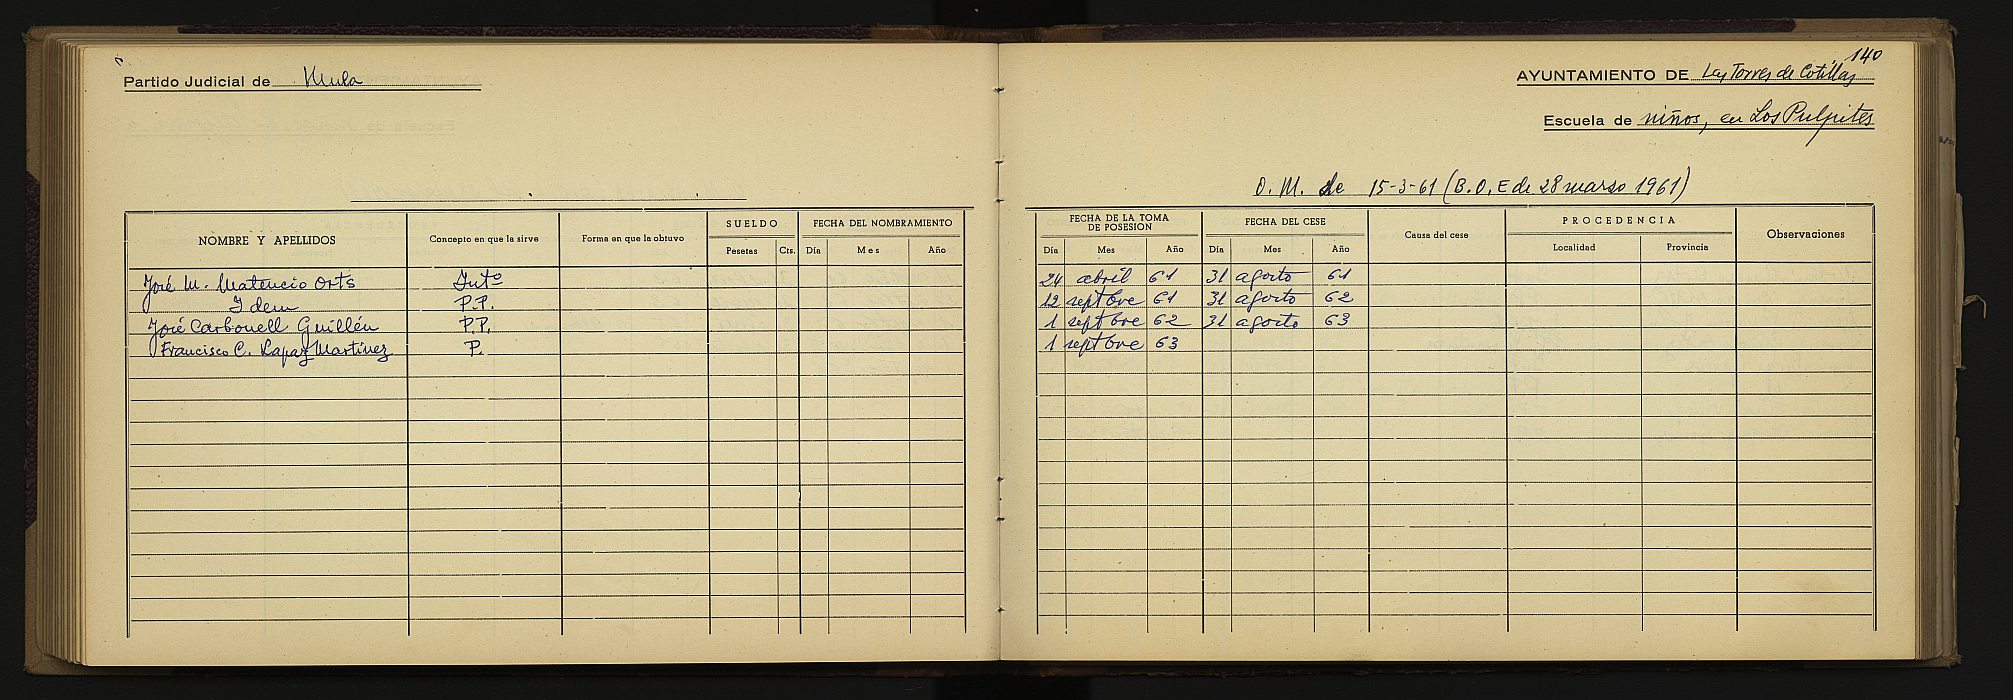 Partido Judicial de Mula
NOMBRE Y APELLIDOS Concepto en que la sirve Forma en que la obtuvo SUELDO FECHA DEL NOMBRAMIENTO
Pesetas Cts. Día Mes Año
José M. Matencio Orts Intº
Idem P.P.
José Carbonell Guillén P.P.
Francisco C. Lapaz Martínez P.
140
AYUNTAMIENTO DE Las Torres de Cotillas
Escuela de niños, en Los Pulpites
O. M. de 15-3-61 (B.O.E de 28 marzo 1961)
FECHA DE LA TOMA DE POSESION FECHA DEL CESE Causa del cese PROCEDENCIA Observaciones
Día Mes Año Día Mes Año Localidad Provincia
24 abril 61 31 agosto 61
12 septbre 61 31 agosto 62
1 septbre 62 31 agosto 63
1 septbre 63